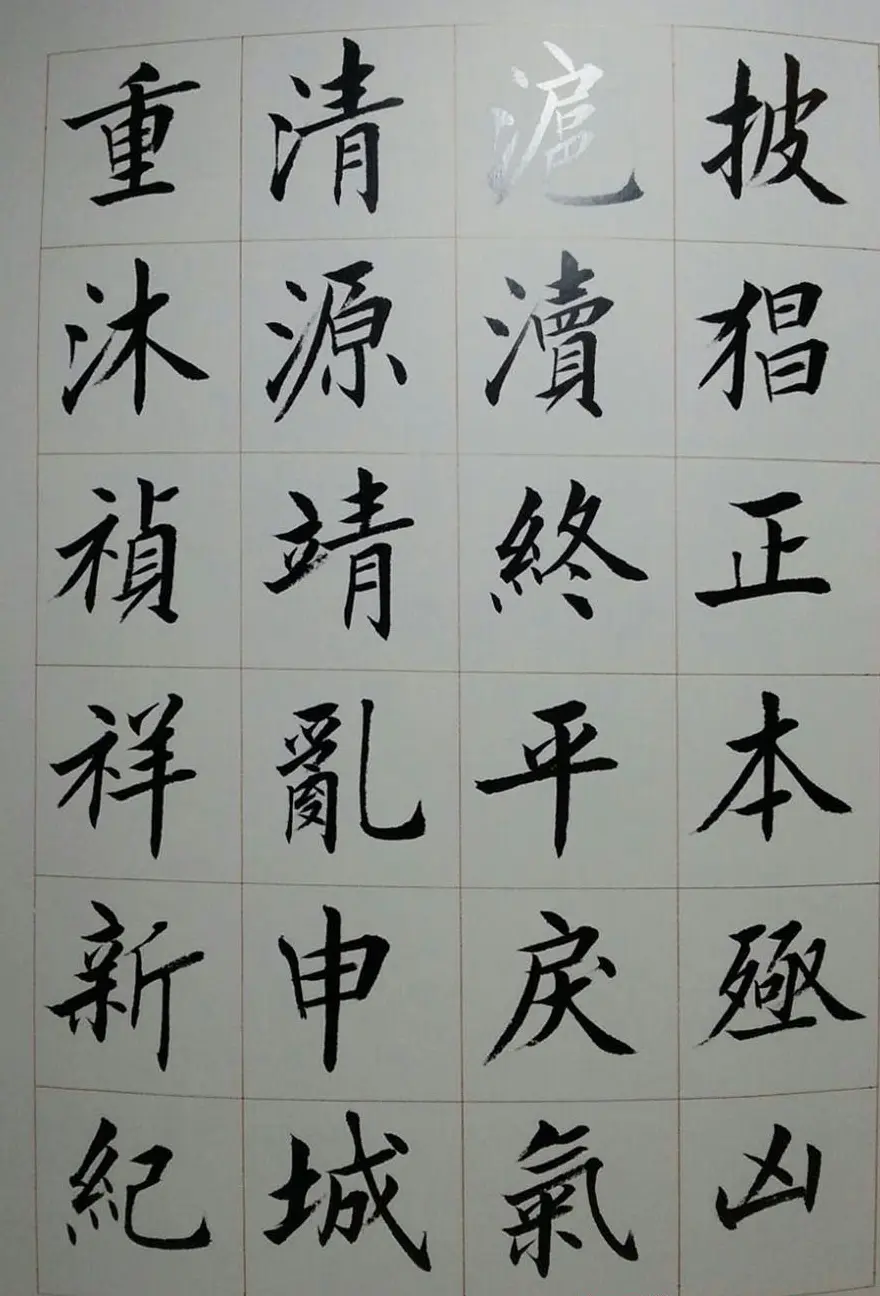 披猖正本殛凶
滬瀆終平戾氣
清源靖亂申城
重沐禎祥新紀